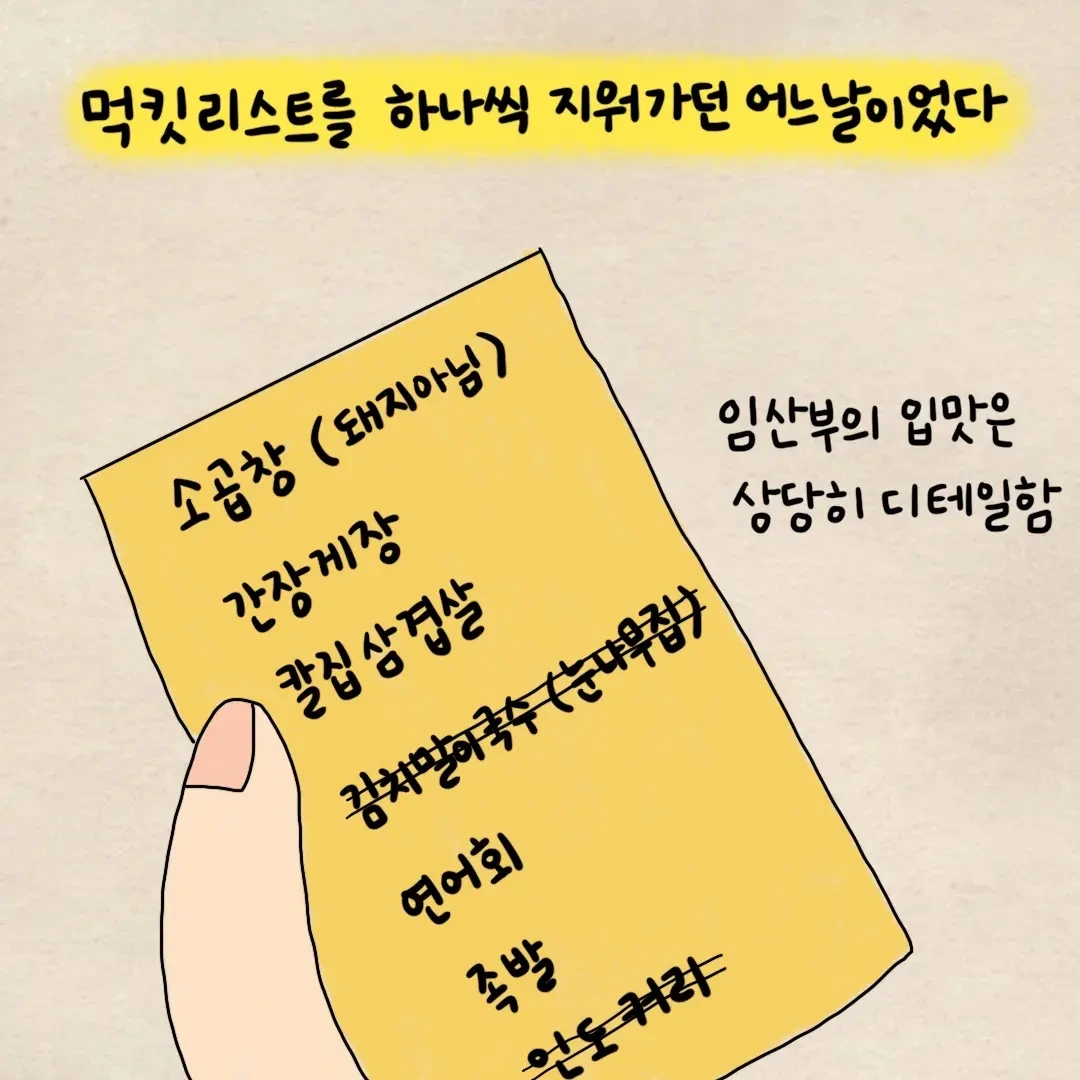 먹킷리스트를 하나씩 지워가던 어느날이었다
소곱창 (돼지아님)
임산부의 입맛은
상당히 디테일함
간장게장
칼집삼겹살
김치말이국수 (눈나무집)
연어회
족발
인도커리